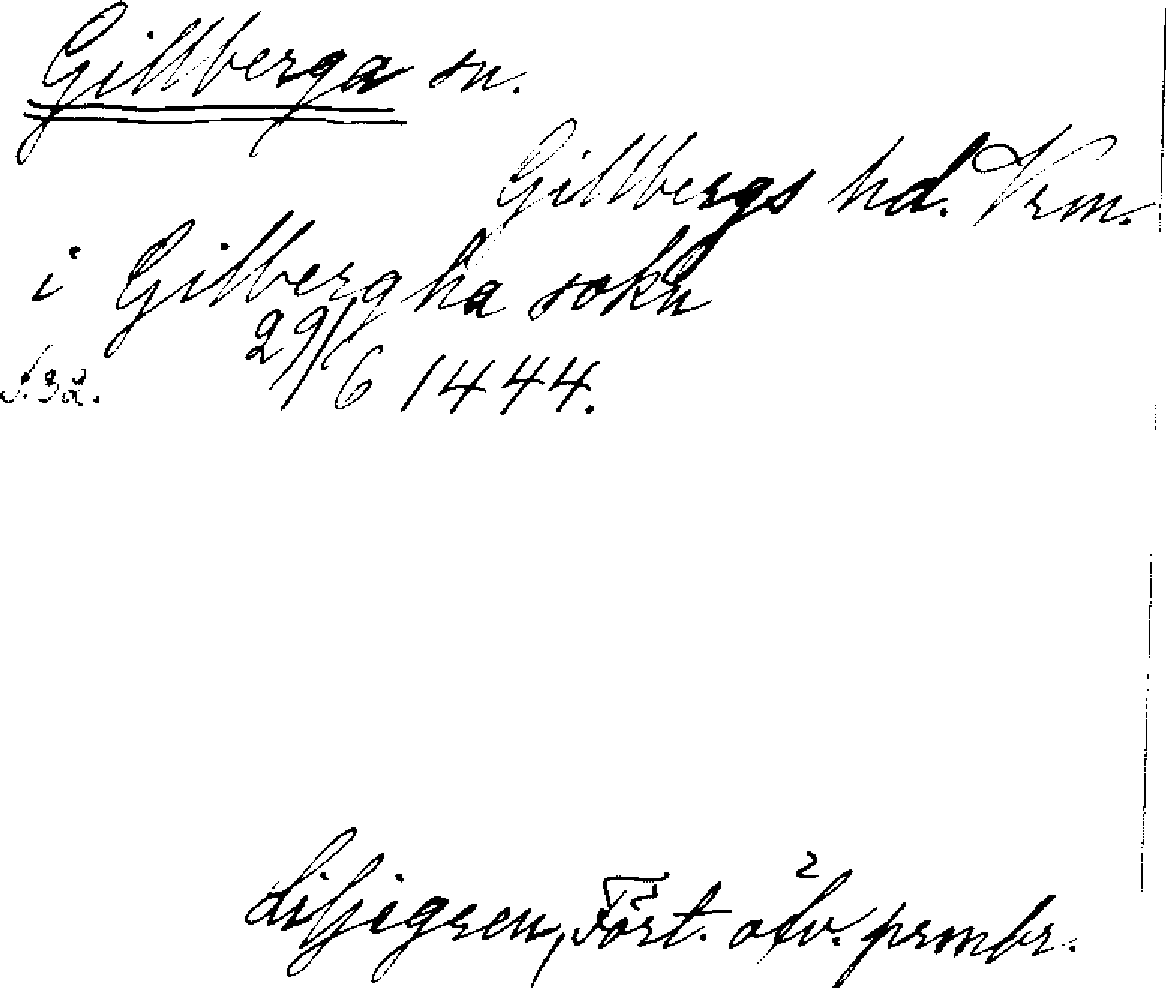 Gillberga sn.
Gillbergs hd. Vrm.
i Gilbergha sokn
29/6 1444.
s. 32.
Liljegren, Fört. öfv. prmbr.